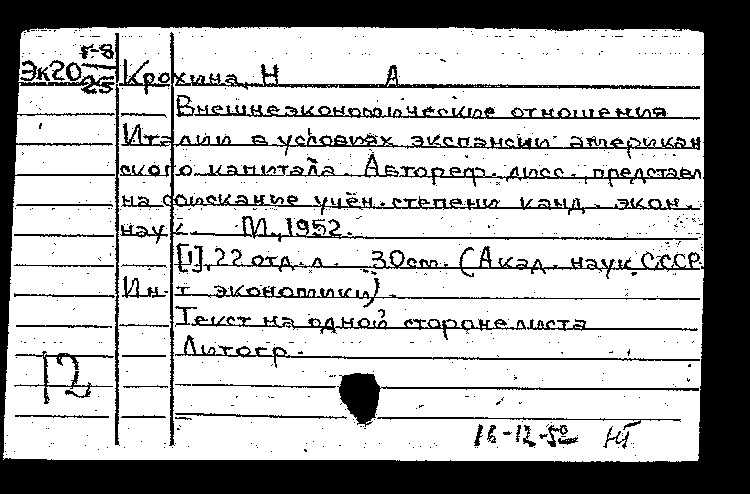 г-8
Эк20 25 Крохина, Н А
Внешнеэкономические отношения
Италии в условиях экспансии американ
ского капитала. Автореф. дисс., представл
на соискание учён. степени канд. экон.
наук. М., 1952.
[1], 22 отд. л. 30см. (Акад. наук СССР.
Ин-т экономики).
Текст на одной стороне листа
Литогр.
12
16-12-52 НТ